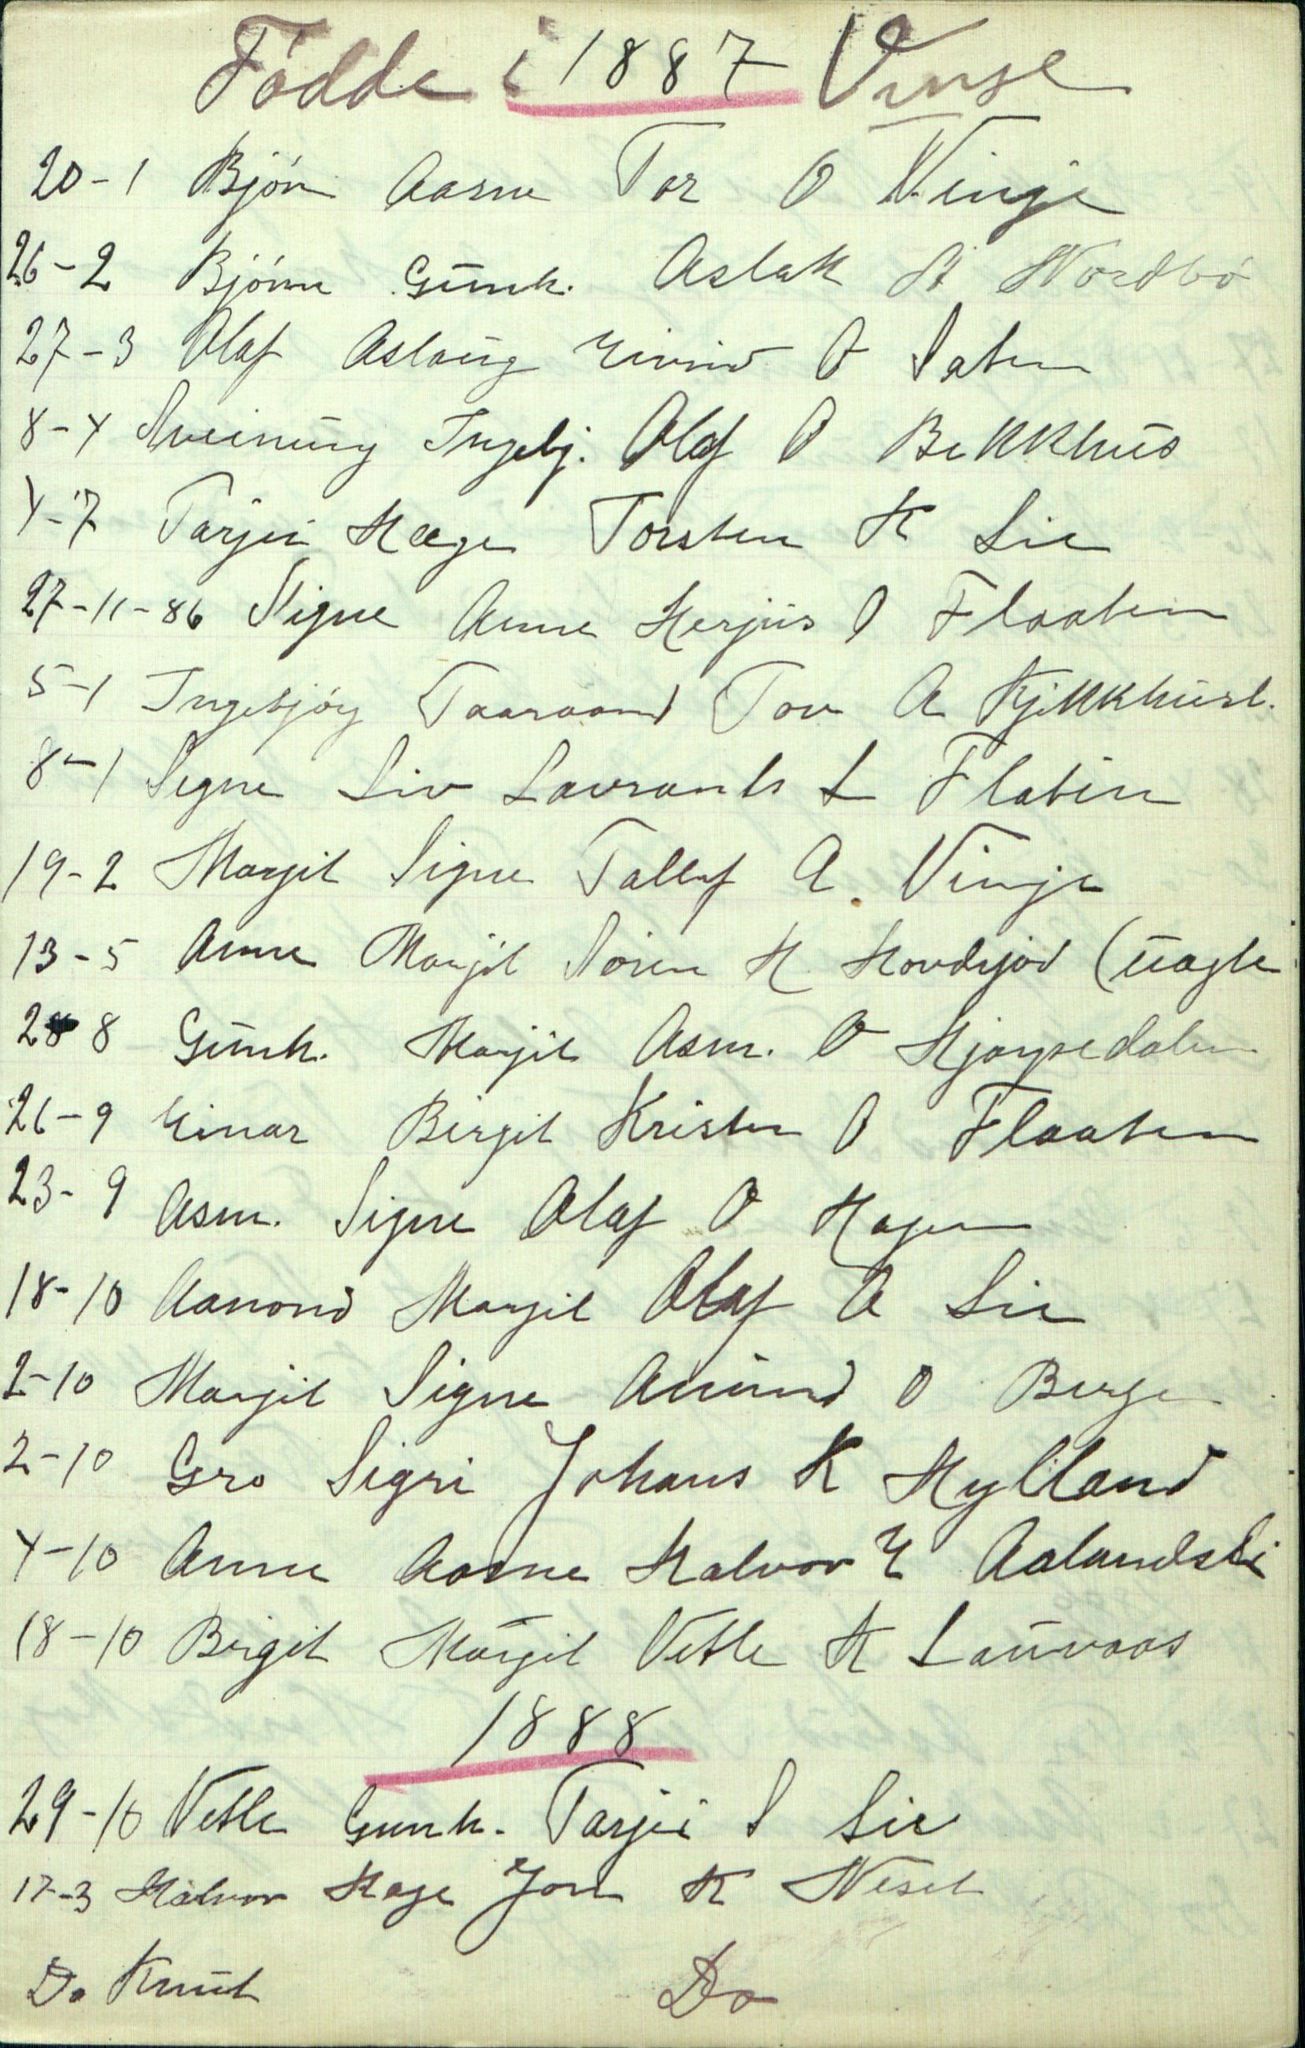 Födde i 1887 Vinje
20-1 Bjón Aasne Tor O Vinje
26-2 Bjónn Gunh. Aslak H Nordbó
27-3 Olaf Aslaug Eivind O Saten
8-4 Sveinung Ingebj. Olaf O Bekkhus
4-7 Tarjei Hæge Torsten K Lie
27-11-86 Signe Anne Herjus O Flaaten
5-1 Ingebjóg Taaraand Tov A Kjikkhusl.
8-1 Signe Liv Lavrants L Flatin
19-2 Margit Signe Tallef A. Vinje
13-5 Anne Margit Sóren H. Hovdejód (
8 Gunh. Margit Asm. O
26-9 Einar Birgit Kristen O Flaaten
23-9 Asm. Signe Olaf O Hagen
18-10 Aanond Margit Olaf A Lie
2-10 Margit Signe Anund O Berge
2-10 Gro Sigri Johans K Hylland
4-10 Anne Aasne Halvor E Aalandsli
18-10 Birgit Margit Vetle H Lauvaas
1888
29-10 Vetle Gunh. Tarjei S Lie
17-3 Halvor Hæge Jon K Neset
Do Knut Do